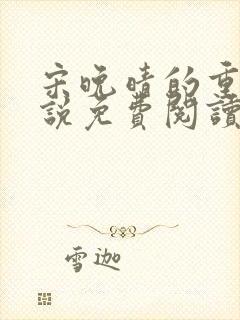 宋晚晴的重
說免費閱讀
雪迦